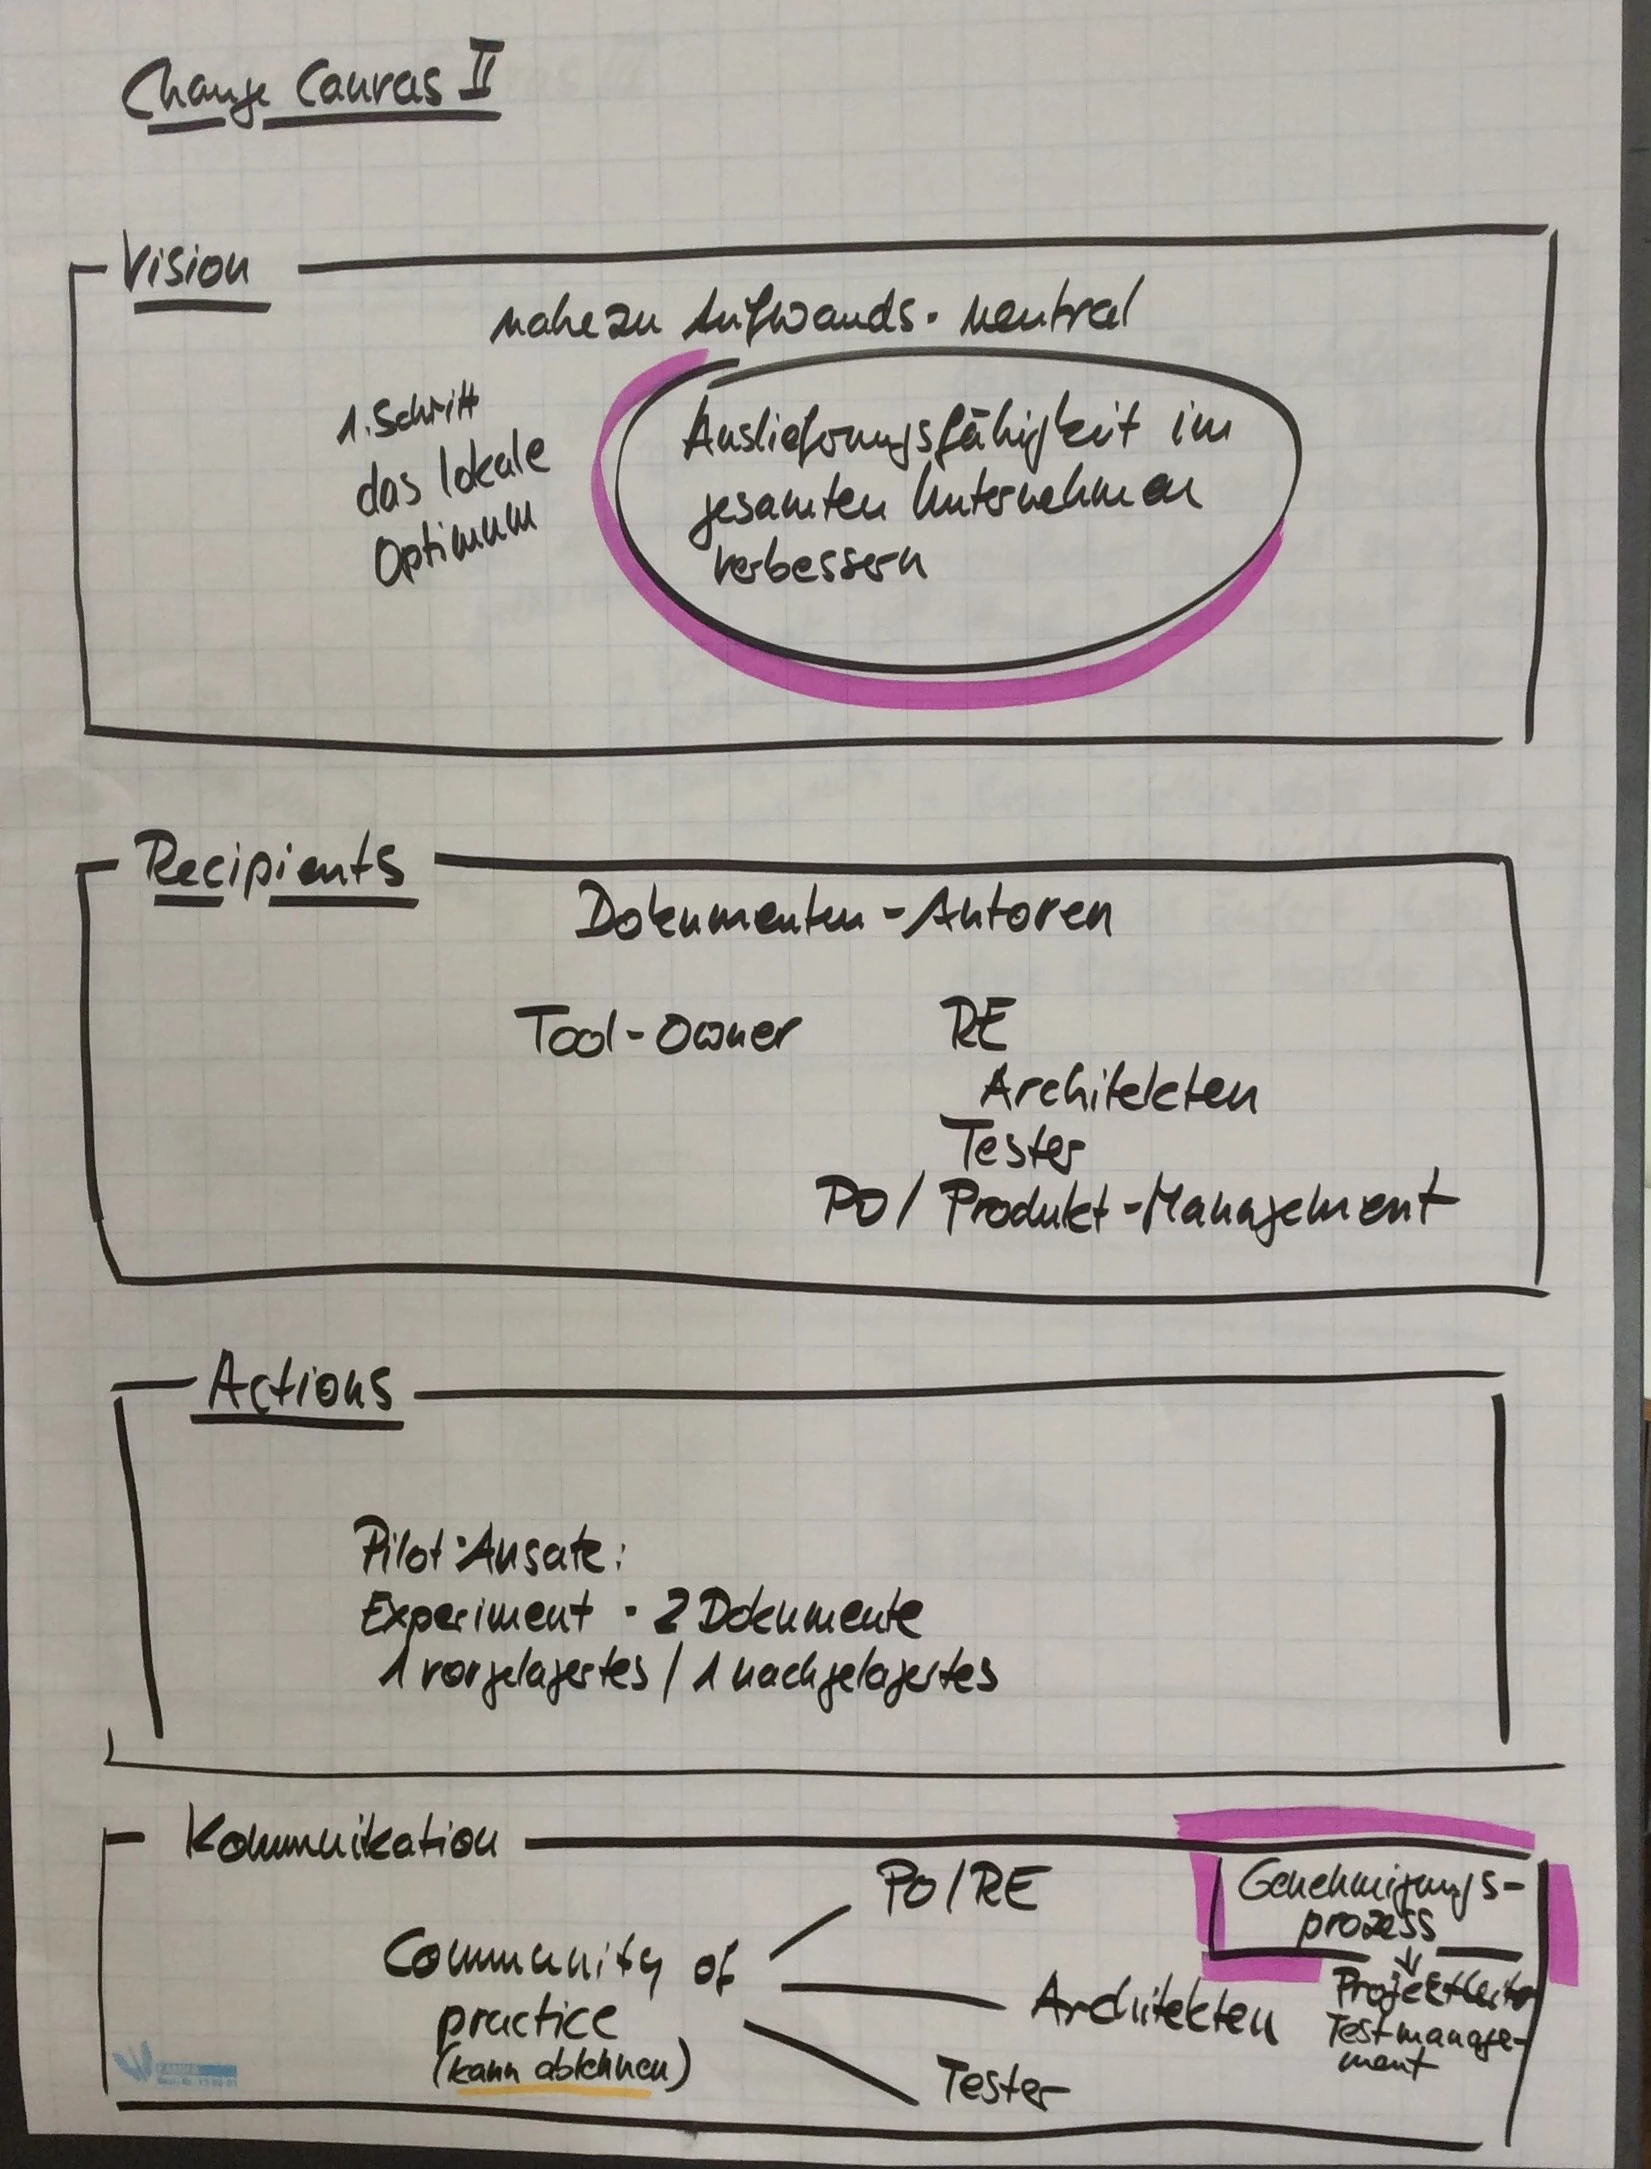 Change Canvas II
Vision
nahezu Aufwands-neutral
1. Schritt
das lokale
Optimum
Auslieferungsfähigkeit im
gesamten Unternehmen
verbessern
Recipients
Dokumenten-Autoren
Tool-Owner
RE
Architekten
Tester
PO/Produkt-Management
Actions
Pilot-Ansatz:
Experiment - 2 Dokumente
1 vorgelagertes / 1 nachgelagertes
Kommunikation
Community of
practice
(kann ablehnen)
PO/RE
Architekten
Tester
Genehmigungs-
prozess
↓
Projektleiter
Testmanage-
ment